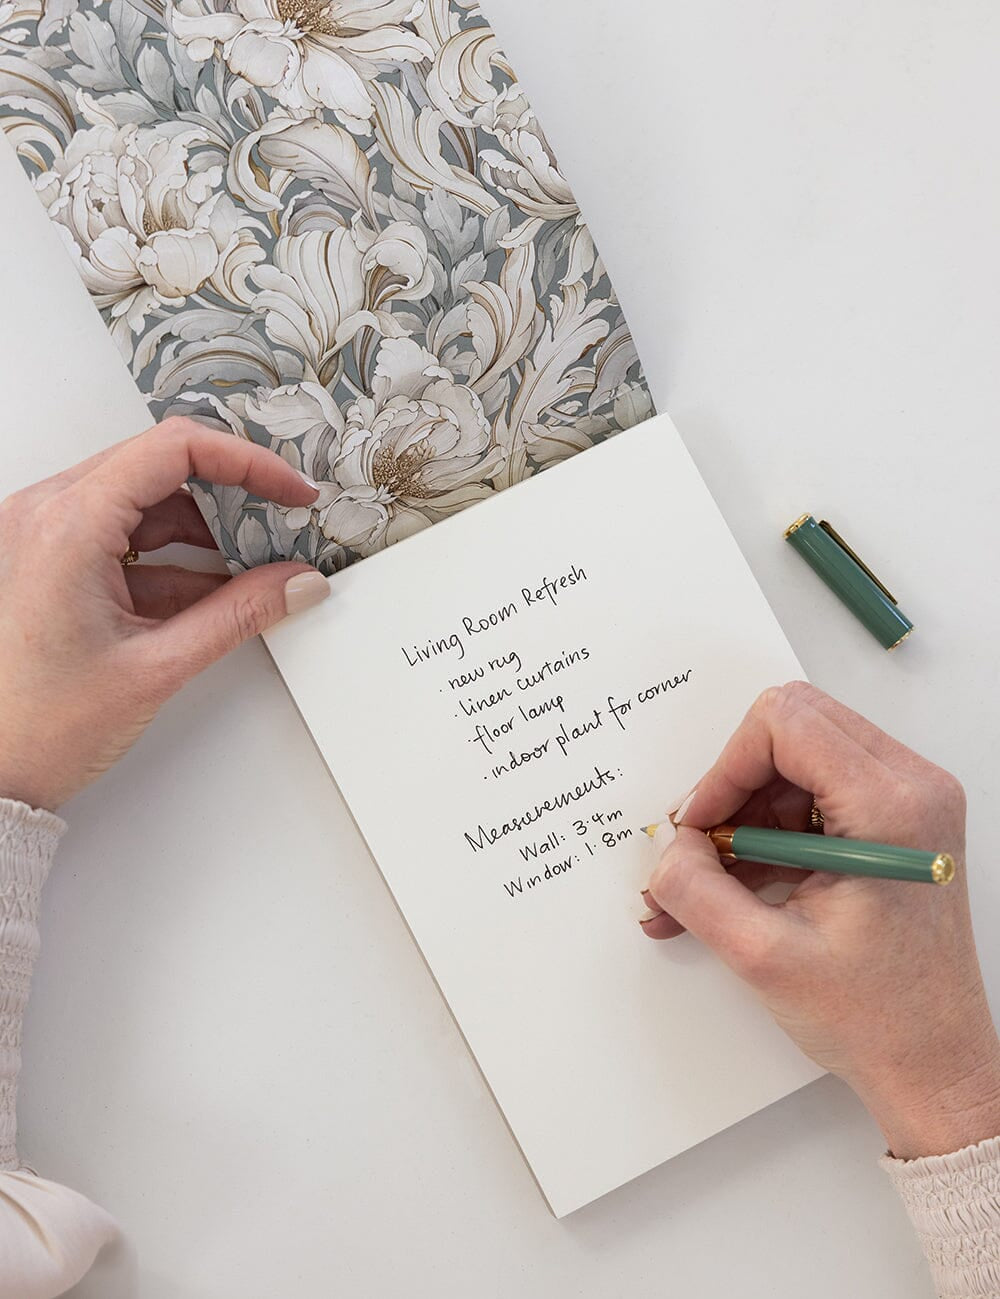 Living Room Refresh
· new rug
· linen curtains
· floor lamp
· indoor plant for corner
Measurements:
Wall: 3·4m
Window: 1·8m